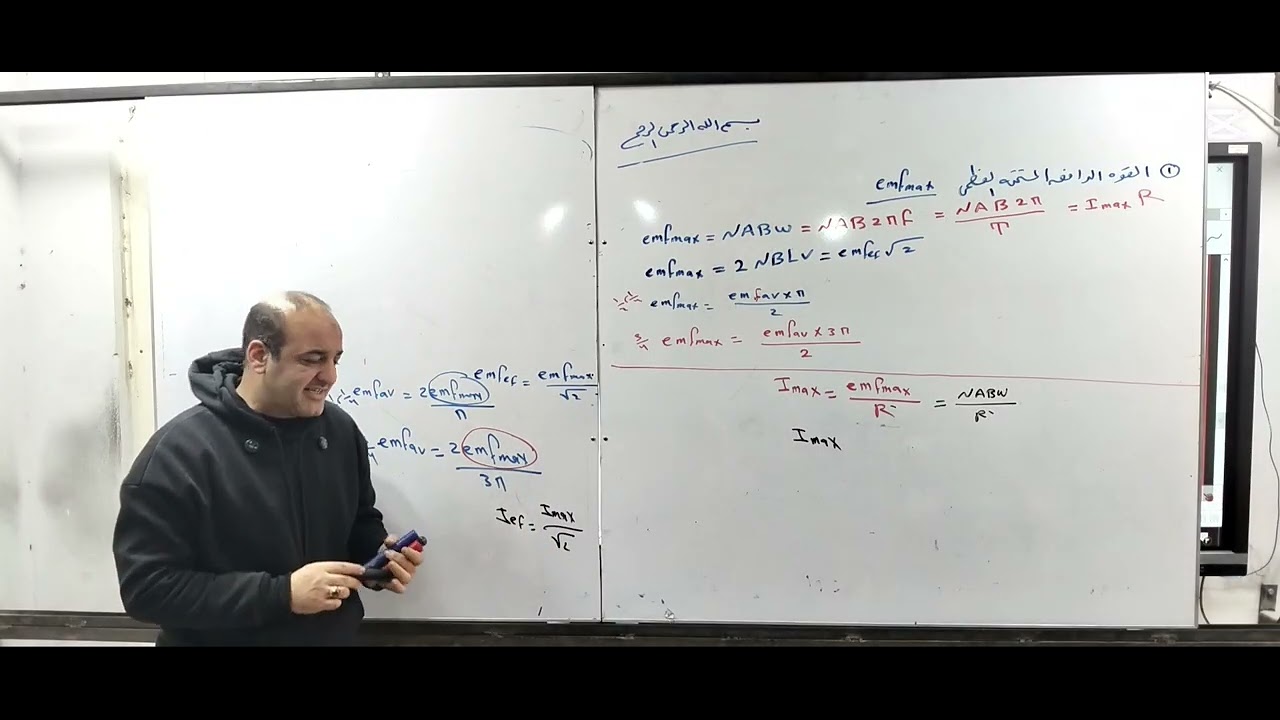 بسم الله الرحمن الرحيم
① القوة الدافعة المستحثة العظمى emfmax
emfmax = NABW = NAB2πf = NAB2π/T = Imax R
emfmax = 2 NBLV = emfef √2
emfmax = emfav × π / 2
3/4 emfmax = emfav × 3π / 2
Imax = emfmax / R = NABW / R
Imax
emfef = emfmax / √2
emfav = 2emfmax / π
emfav = 2emfmax / 3π
Ief = Imax / √2